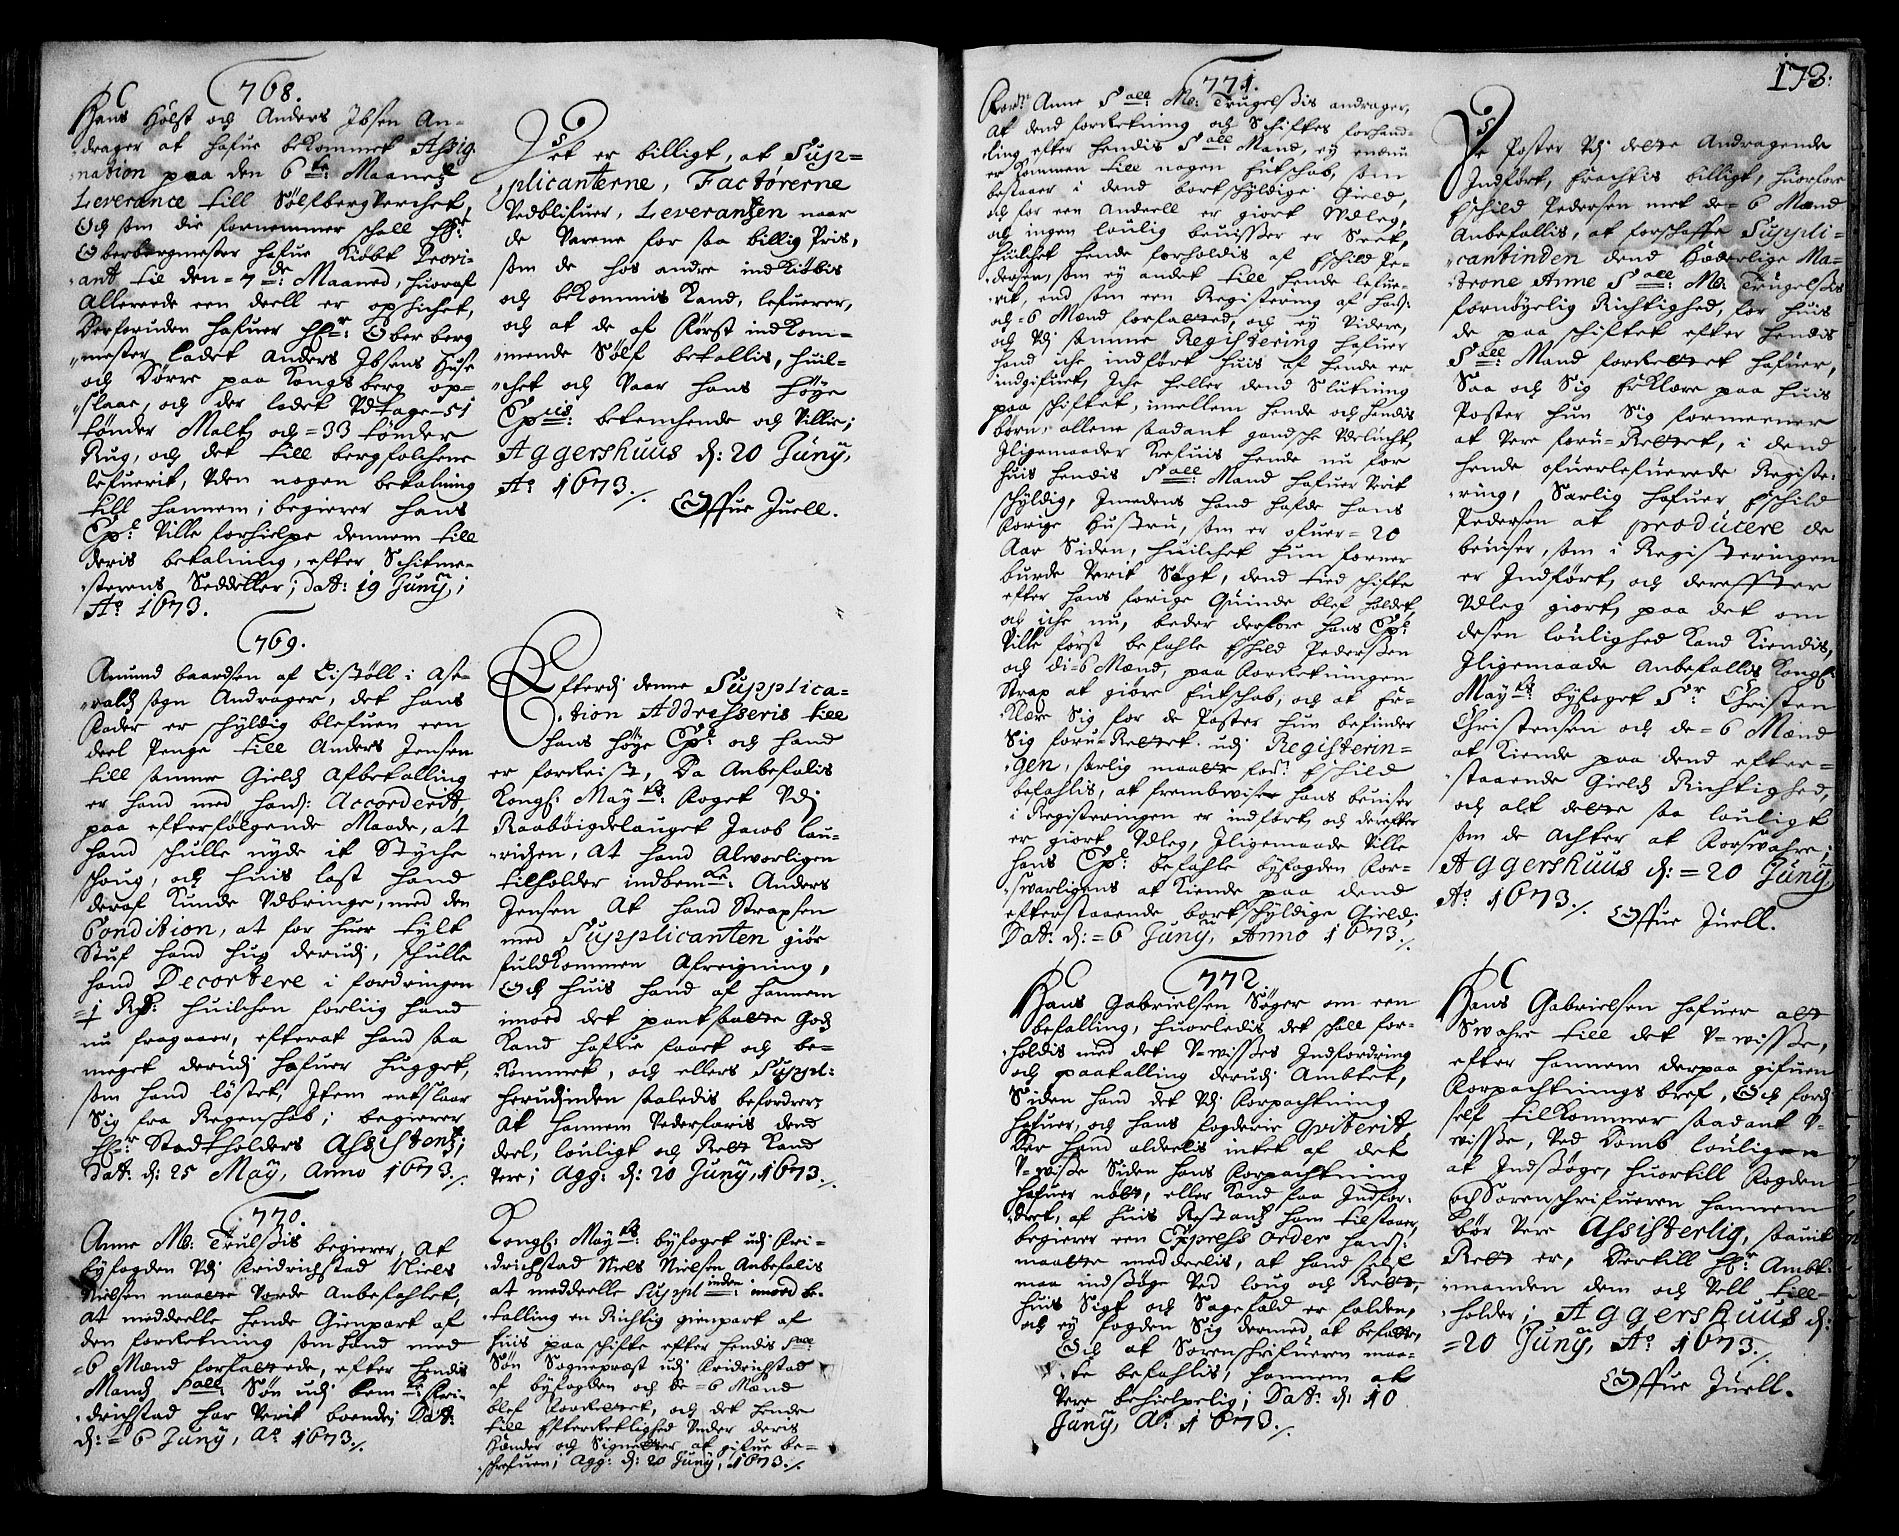 768.
Hans Holst och Anders Ibsen An-
drager at hafue bekommet Assig-
nation paa den 6te Maanetz
Leverance till Sølfberg Verchet,
Och som die fornemmer schall Hr:
Oberbergmester hafue Kiøbt Provi-
ant til den =7de: Maaned, huoraf
Allereede een deell er ophichet,
Derforuden hafuer Hr: Oberberg
mester ladet Anders Ibsens Huse
och Dørre paa Kongsberg op-
slaae, och der ladet Vdtage =51
tønder Malt och =33 tønder
Rug, och det till bergfolchene
lefuerit, Vden nogen betalning
till hannem; begierer hans
Exp: Ville forhielpe dennem till
deris betaling, efter Schitme-
sterens Seddeller; Dat: 19 Junÿ;
Ao 1673.

Det er billigt, at Sup-
plicanterne, Factørerne
Vedblifuer, Leverantzen naar
de Varene for saa billig Pris,
som de hos andre indkiøbis
och bekommis Kand, lefuerer,
och at de af først indkom-
mende Sølf betallis, huil-
chet och Vaar hans Høye
Exp: betenchende och Villie;
Aggershuus d: 20 Junÿ,
Ao 1673./.
Offue Juell.

769.
Amund baardsen af Eistøll i Ase-
ralds sogn Andrager, det hans
Fader er schyldig blefuen een
deel Penge till Anders Jensen
till samme Gields Afbetalling
er hand med hands: Accorderit,
paa efterfølgende Maade, at
hand schulle nyde it Styche
schoug, och huis last hand
deraf Kunde Vdbringe, med den
Condition, at for huer tylt
Stuf hand hug derudj, schulle
hand Decortere i fordringen
=1 Rdr: huilchen forliig hand
nu fragaaer, efterat hand saa
meget derudj hafuer hugget,
som hand løstet, Item entslaar
Sig fra Regenschab; begierer
Hr: Stadtholders Assistentz;
Dat: d: 25 May, Anno 1673./.

Efterdj denne Supplica-
tion Addresseris till
hans høye Exp: och hand
er forreist, Da Anbefalis
Kongl: Mayts: Foget Vdj
Raabøigdelauget Jacob Lau-
ridzen, At hand Alvorligen
tilholder indbemte: Anders
Jensen At hand Strapsen
med Supplicanten giør
fuldkommen Afreigning,
Och huis hand af hannem
imod det pantsatte Gods
Kand hafue faaet och be-
kommet, och ellers Suppl:
herudjinden saaledis befordrer,
At hannem Vederfaris dend
deel, louligt och Rett Kand
Vere; Agg: d: 20 Junÿ, 1673./.

770.
Anne Mo: Trulssis begierer, At
byfogden Vdj Fridrichstad Niels
Nielsen maatte Vorde Anbefahlet,
at meddeelle hende Gienpart af
den forretning som hand med
=6 Mænd forfattede, efter hendis
Mands Sall: Søn udj bemte: Fri-
drichstad har Verit boende; Dat:
d: =6 Junÿ, Ao 1673./.

Kongl: Mayts: byfoget udj Fri-
drichstad Niels Nielsen Anbefalis
at meddeelle Supplinden: imod be-
talling en Richtig gienpart af
huis paa schifte efter hendis Sall:
Søn Sogneprest udj Fridrichstad
af byfogden och de =6 Mænd
blef forrettet, och det hende
till Efterrettlighed Vnder deris
Hænder och Signetter at gifue be-
schrefuen; Agg: d: 20 Junÿ, 1673./.

173:
771.
Anne Sall: Mo: Trugelssis andrager,
At dend forretning och Schiftes forhand-
ling efter hendis Sall: Mand, ey endnu
er kommen till nogen Endschab, som
bestaaer i dend bortschyldige Gield,
och for een Andeell er giort Vdleg,
och ingen loulig beuisser er Seet,
huilchet hende forholdis af Eschild Pe-
dersen, som ey andet till hende lefue-
rit, end som een Registering af hans:
och =6 Mænd forfatted, och ey Videre,
och Vdj samme Registering hafuer
hand iche indført huis af hende er
indgifuet, Iche heller dend Slutning
paa schiftet, imellem hende och hendis
børn, allene saadant gandsche Vdelucht,
Iligemaader Krefuis hende nu for
huis hendis Sall: Mand hafuer Verit
schyldig, Imedens hand hafde hans
forige Hustru, som er ofuer =20
Aar Siden, huilchet hun forner
burde Verit Søgt, dend tid schifte
efter hans forige Quinde blef holdet,
och iche nu, beder derfore hans Exp:
Ville først befahle Eschild Pederssen
och di =6 Mænd, paa forretningen
Strax at giøre Endschab, och at Er-
klære Sig for de Poster hun befinder
Sig foru-Rettet udj Registerin-
gen, særlig maatte for: Eschild
befahlis, at frembwise hans beuiser
i Registeringen er indført, och derefter
er giort Vdleg, Iligemaade Ville
hans Exp: befahle byfogden For-
swarligens at Kiende paa dend
efterstaaende bortschyldige Gield;
Dat: d: =6 Junÿ, Anno 1673./.

De Poster Vdj dette Andragende
Indført, Eractis billigt, huorfore
Eschild Pedersen met de =6 Mænd
Anbefallis, at forschaffe Suppli-
cantinden dend Hæderlige Ma-
trone Anne Sall: Mo: Trugelssis
fornøyelig Richtighed, for huis
de paa schiftet efter hendis
Sall: Mand forrettet hafuer,
Saa och Sig Erklære paa huis
Poster hun Sig formeener
at Vere foru-Rettet, i dend
hende ofuerlefuerede Registe-
ring, Særlig hafuer Eschild
Pedersen at producere de
beuiser, som i Registeringen
er Indført, och dereffter
Vdleg giort, paa det om
desen loulighed Kand Kiendis,
Iligemaade Anbefallis Kongl:
Mayts: byfoget Sr: Christen
Christensen och de =6 Mænd
at Kiende paa dend efter-
staaende Gields Richtighed,
och alt dette saa louligt
som de Achter at forswahre;
Aggershuus d: =20 Junÿ
Ao 1673./.
Offue Juell.

772.
Hans Gabrielsen Søger om een
befalling, huorledis det schall for-
holdis med det V-wisses Indfordring
och paatalling derudj Ambtet,
Siden hand det Vdj Forpachtning
hafuer, och hans fogderie Qviterit,
Der hand aldeelis intet af det
V-wisse Siden hans Forpachtning
hafuer nøtt, eller Kand faa Indfor-
dret, af huis Restantz ham tilstaar,
begierer een Express order hands:
maatte meddeelis, at hand self
maa indsøge Ved loug och Rett,
huis Sigt och Sagefald er falden,
och ey fogden Sig dermed at befatte,
Och at Sorenschrifueren maa-
te befahlis, hannem at
Vere behielpelig; Dat: d: 10
Junÿ, Ao 1673./.

Hans Gabrielsen hafuer att
Swahre till det V-wisse,
efter hannem derpaa gifuen
Forpachtnings bref, Och fordj
self tilkommer saadant V-
wisse, Ved Domb louligen
at Indsøge, huortill Fogden
och Sorenschrifueren hannem
bør Vere Assisterlig, saauit
Rett er, Dertill Hr: Ambt-
manden dem och Vell till-
holder; Aggershuus d:
=20 Junÿ, Ao 1673./.
Offue Juell.